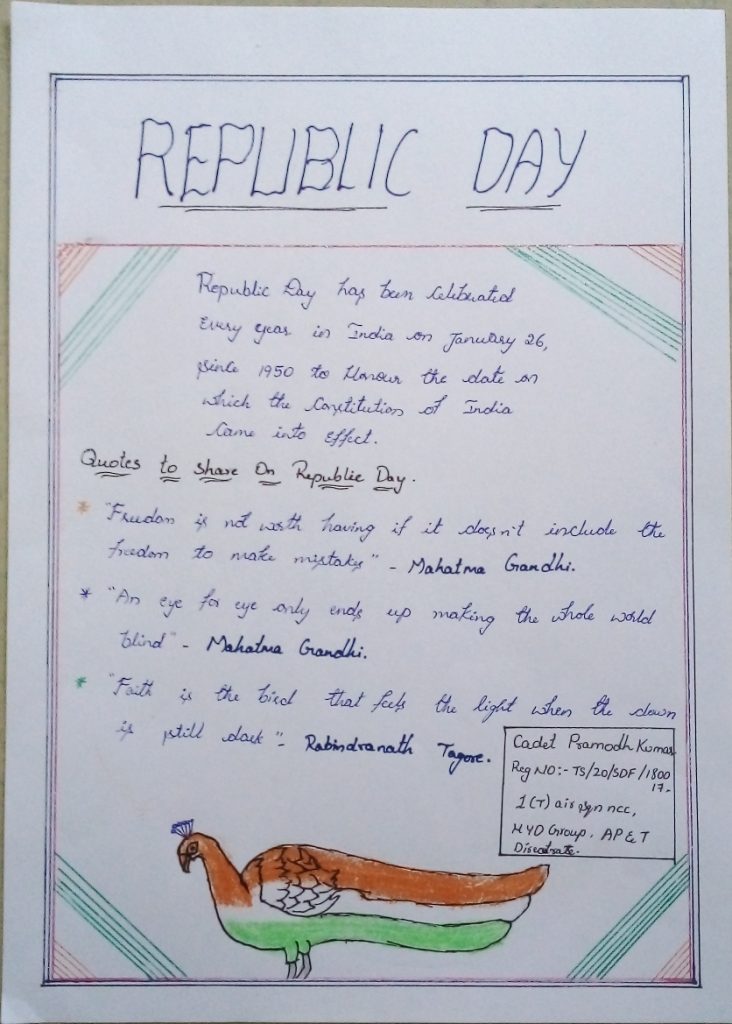 REPUBLIC DAY
Republic Day has been Celebrated
Every year in India on January 26,
since 1950 to Honour the date on
which the Constitution of India
Came into Effect.
Quotes to share On Republic Day.
* "Freedom is not worth having if it doesn't include the
freedom to make mistakes" - Mahatma Gandhi.
* "An eye for eye only ends up making the whole world
blind" - Mahatma Gandhi.
* "Faith is the bird that feels the light when the dawn
is still dark" - Rabindranath Tagore.
Cadet Pramodh Kumar
Reg NO:- TS/20/SDF/1800
17.
1(T) air sqn ncc,
HYD Group, AP & T